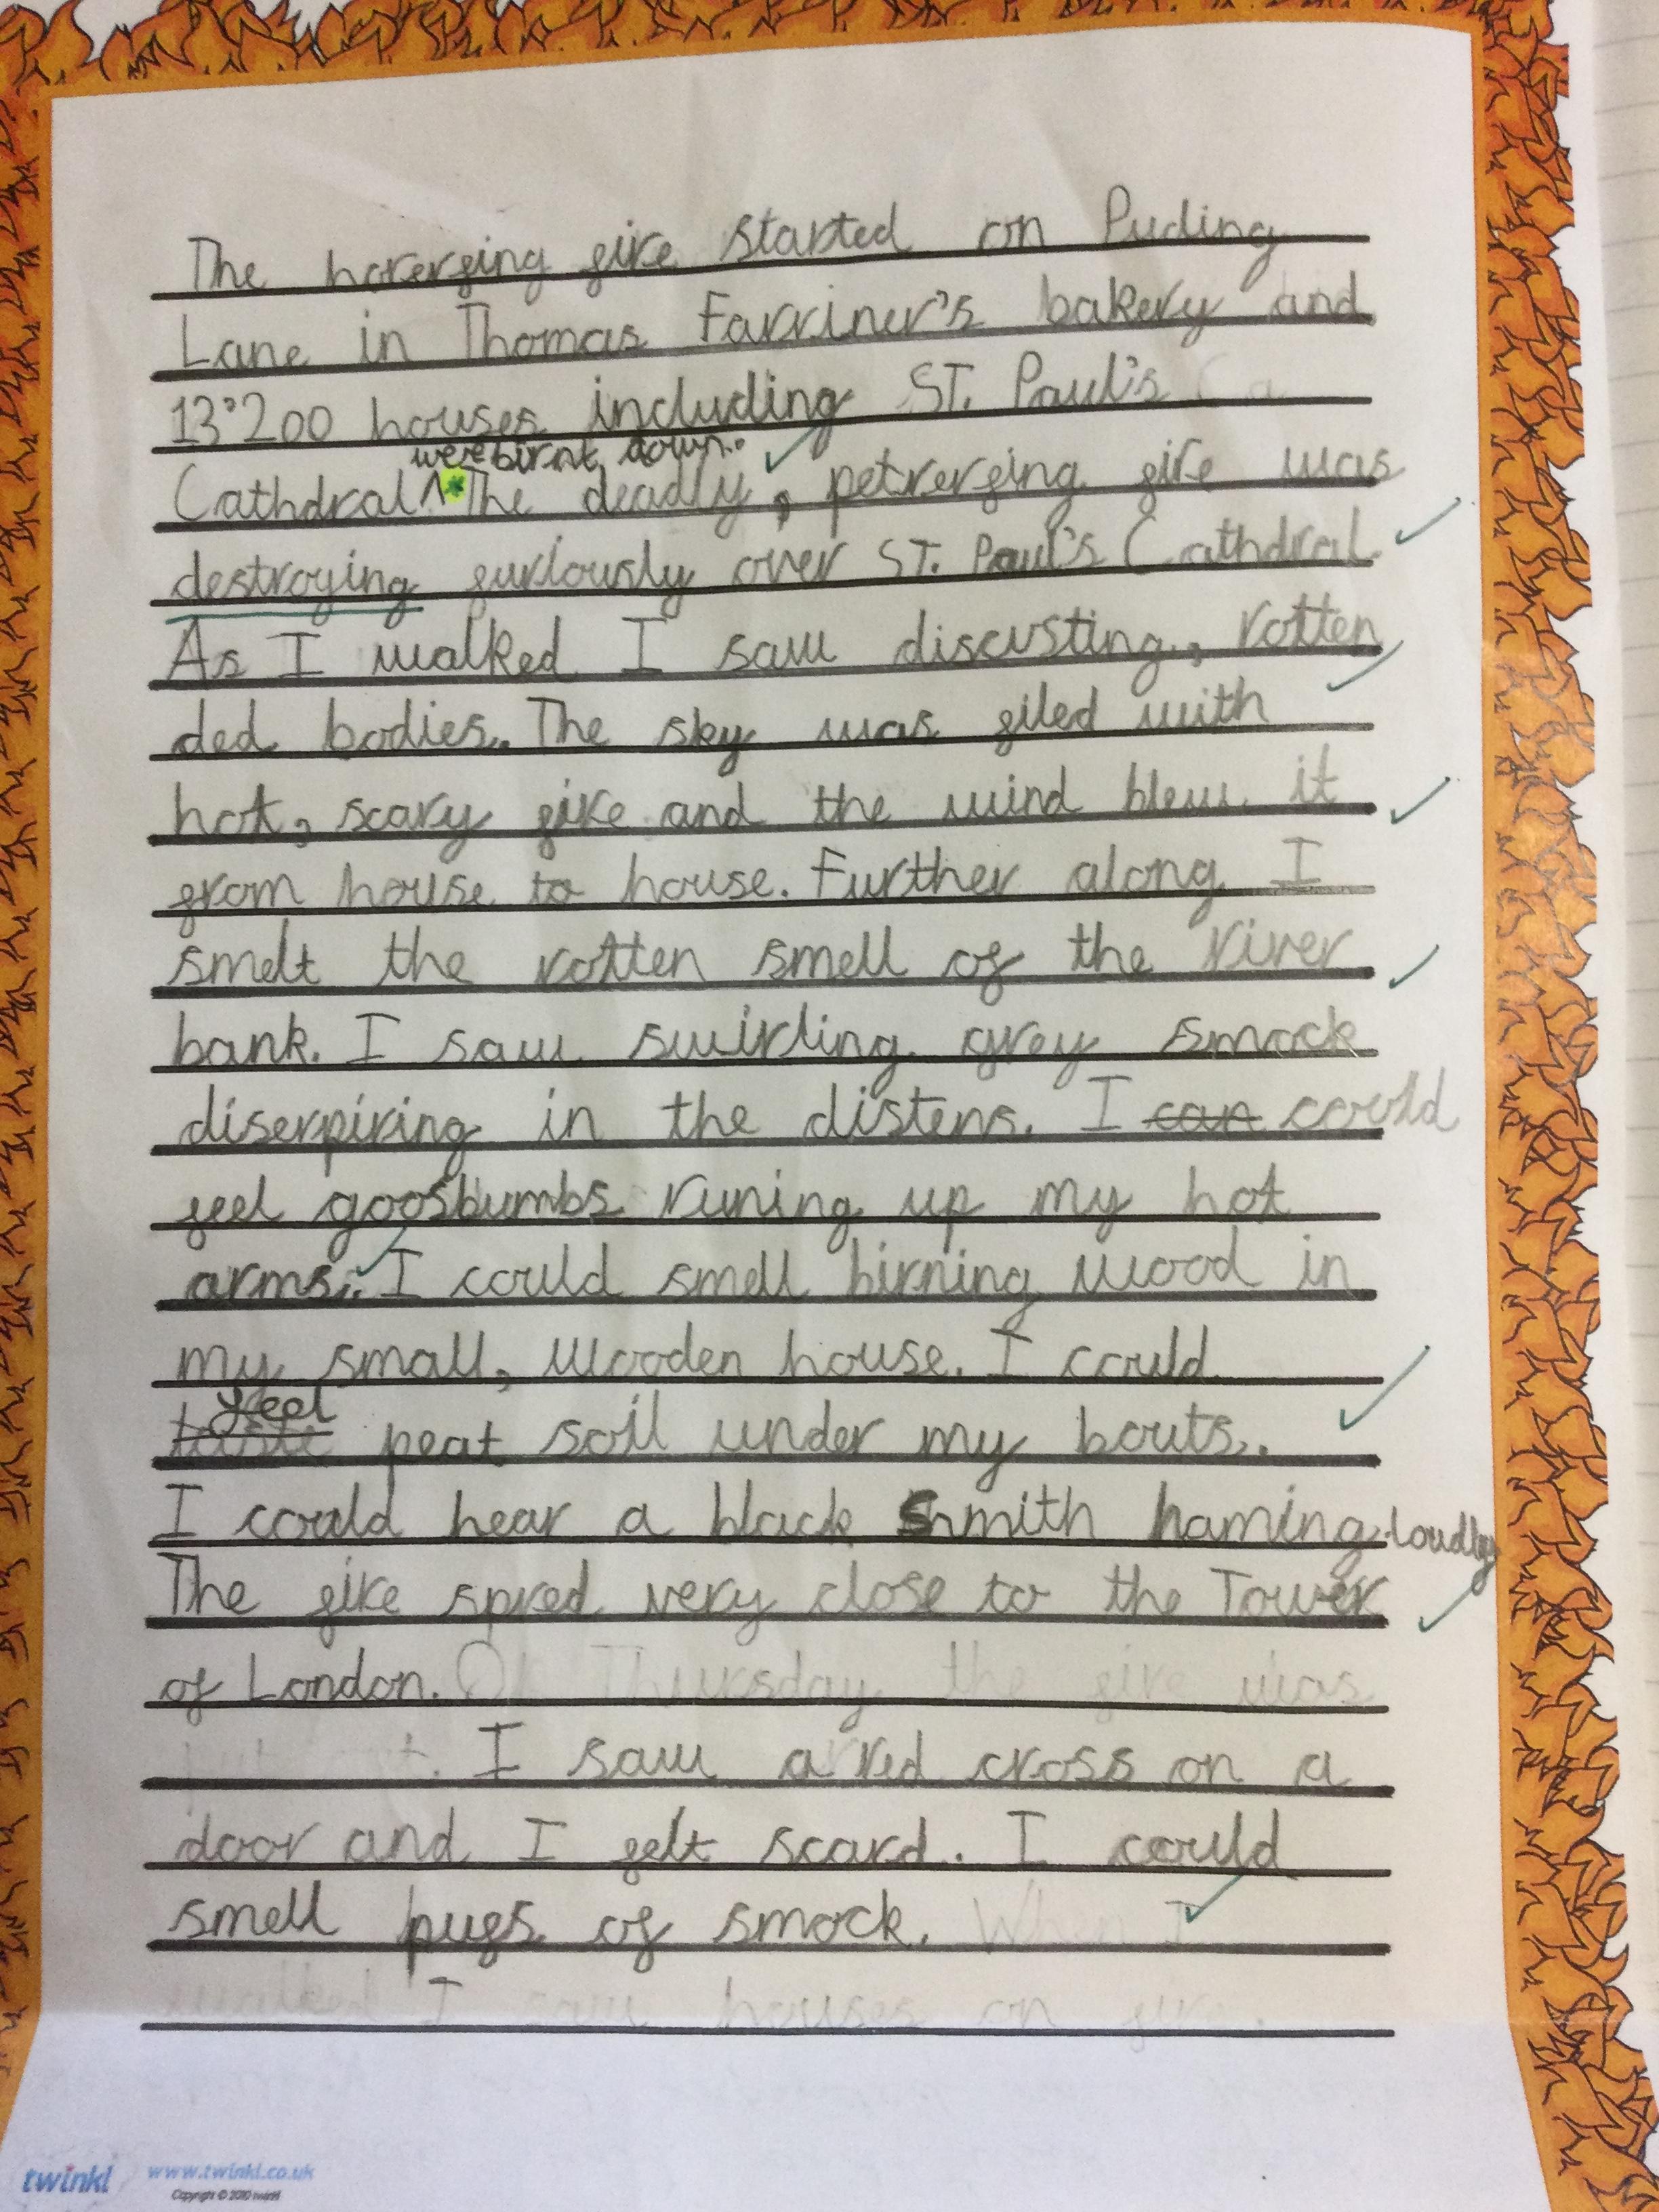 The horerfing fire started on Puding
Lane in Thomas Farriner's bakery and
13'200 houses including ST. Paul's Ca
were birnt down.
Cathdral ^* The deadly, petrerfing fire was
destroying furiously over ST. Paul's Cathdral.
As I walked I saw discusting, rotten
ded bodies. The sky was filed with
hot, scary fire and the wind blew it
from house to house. Further along I
smelt the rotten smell of the river
bank. I saw swirling grey smock
diserpiring in the distens. I can could
feel goosbumbs runing up my hot
arms. I could smell birning wood in
my small, wooden house. I could
feel
taste peat soil under my bouts.
I could hear a black Smith haming loudly
The fire spred very close to the Tower
of London. On Thursday the fire was
put out. I saw a red cross on a
door and I felt scard. I could
smell pufs of smock. When I
walked I saw houses on fire.
twinkl www.twinkl.co.uk
Copyright © 2010 twinkl